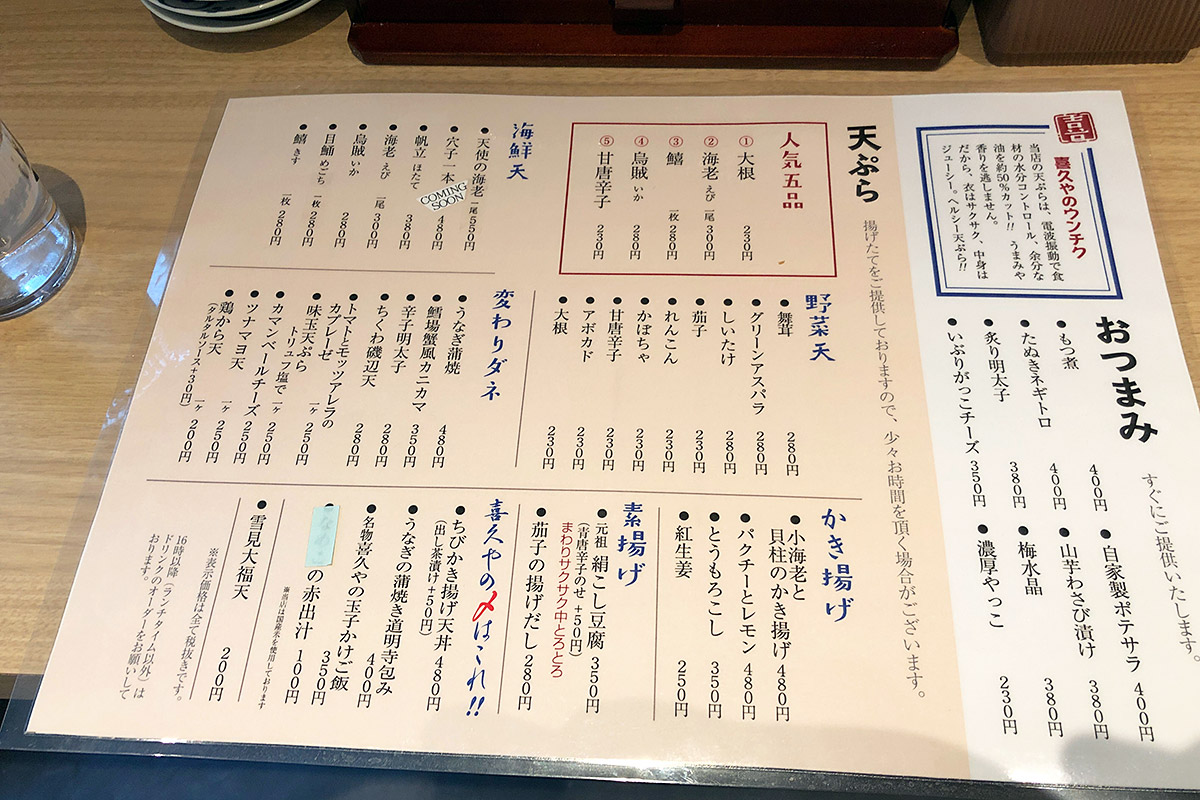 喜
喜久やのウンチク
当店の天ぷらは、電波振動で食
材の水分コントロール、余分な
油を約50%カット!! うまみや
香りを逃しません。
だから、衣はサクサク、中身は
ジューシー。ヘルシー天ぷら!!
おつまみ
すぐにご提供いたします。
●もつ煮 400円
●たぬきネギトロ 400円
●炙り明太子 380円
●いぶりがっこチーズ 350円
●自家製ポテサラ 400円
●山芋わさび漬け 380円
●梅水晶 380円
●濃厚やっこ 230円
天ぷら
揚げたてをご提供しておりますので、少々お時間を頂く場合がございます。
人気五品
①大根 230円
②海老 えび 一尾 300円
③鱚 一枚 280円
④烏賊 いか 280円
⑤甘唐辛子 230円
海鮮天
●天使の海老 一尾 550円
●穴子一本 480円
COMING SOON
●帆立 ほたて 380円
●海老 えび 一尾 300円
●烏賊 いか 280円
●目鯒 めごち 一枚 280円
●鱚 きす 一枚 280円
野菜天
●舞茸 280円
●グリーンアスパラ 280円
●しいたけ 280円
●茄子 230円
●れんこん 230円
●かぼちゃ 230円
●甘唐辛子 230円
●アボカド 230円
●大根 230円
変わりダネ
●うなぎ蒲焼 480円
●鱈場蟹風カニカマ 350円
●辛子明太子 350円
●ちくわ磯辺天 280円
●トマトとモッツアレラの
カプレーゼ 280円
●味玉天ぷら
トリュフ塩で 一ヶ 250円
●カマンベールチーズ 一ヶ 250円
●ツナマヨ天 250円
●鶏から天 一ヶ 200円
(タルタルソース+30円)
かき揚げ
●小海老と
貝柱のかき揚げ 480円
●パクチーとレモン 480円
●とうもろこし 350円
●紅生姜 250円
素揚げ
●元祖 絹こし豆腐 350円
(青唐辛子のせ +50円)
まわりサクサク中とろとろ
●茄子の揚げだし 280円
喜久やの〆はこれ!!
●ちびかき揚げ天丼 480円
(出し茶漬け+50円)
●うなぎの蒲焼き道明寺包み 400円
●名物 喜久やの玉子かけご飯 350円
●の赤出汁 100円
※当店は国産米を使用しております
●雪見大福天 200円
※表示価格は全て税抜きです。
16時以降(ランチタイム以外)は
ドリンクのオーダーをお願いして
おります。